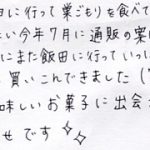 日に行って巣ごもりを食べて
い今年7月に通販の案内
にまた飯田に行っていっぱ
買いこんできました(
味しいお菓子に出会
せです